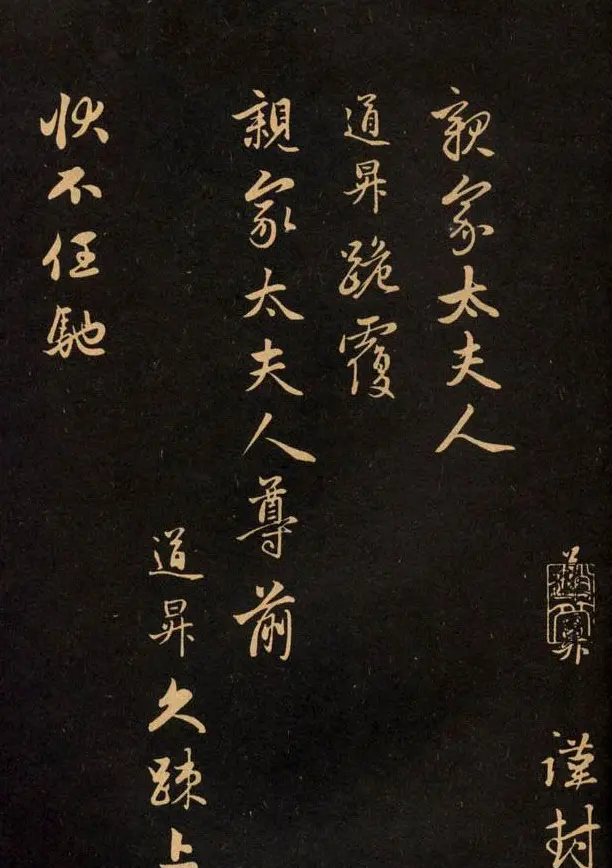 道昇謹封
親家太夫人
道昇跪覆
親家太夫人尊前
道昇久踈上
状不任馳